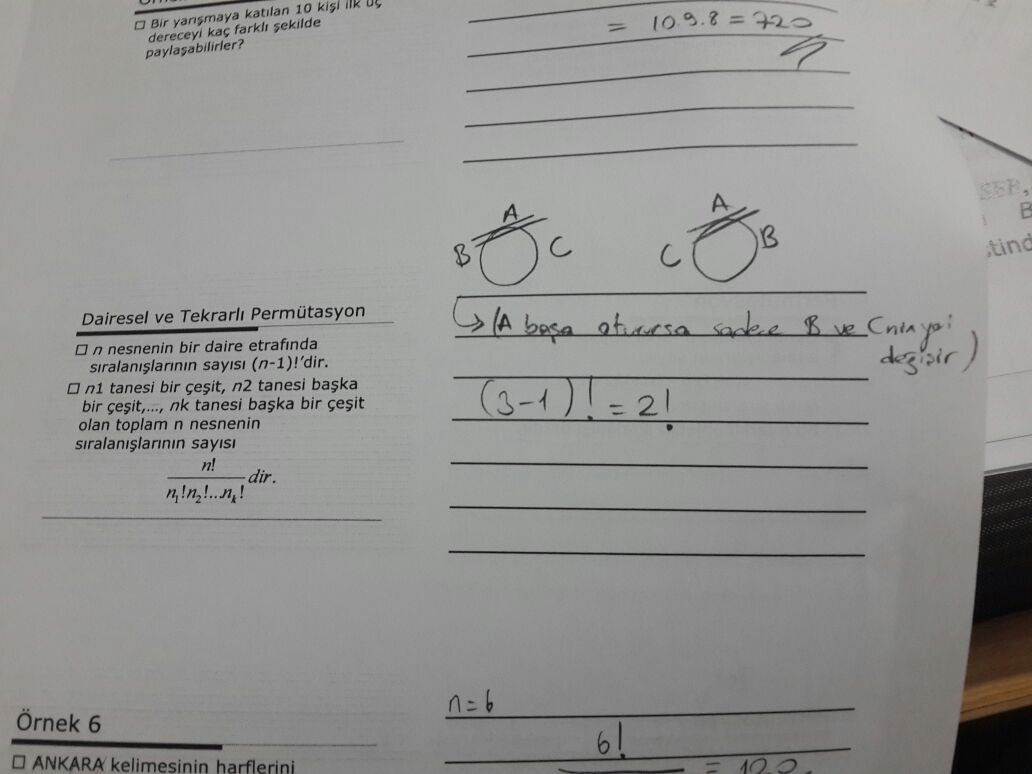 □ Bir yarışmaya katılan 10 kişi ilk üç
dereceyi kaç farklı şekilde
paylaşabilirler?
= 10.9.8 = 720
A
B C
A
C B
Dairesel ve Tekrarlı Permütasyon
□ n nesnenin bir daire etrafında
sıralanışlarının sayısı (n-1)!'dir.
□ n1 tanesi bir çeşit, n2 tanesi başka
bir çeşit,..., nk tanesi başka bir çeşit
olan toplam n nesnenin
sıralanışlarının sayısı
n!
n₁!n₂!...nₖ! dir.
→ (A başa oturursa sadece B ve C nin yeri
değişir)
(3-1)! = 2!
Örnek 6
□ ANKARA kelimesinin harflerini
n=6
6!
= 120